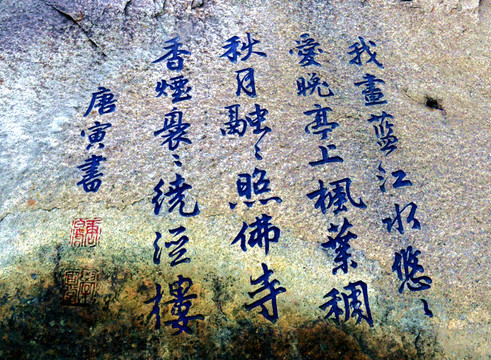 我畫藍江水悠〻
愛晚亭上楓葉稠
秋月融〻照佛寺
香煙裊〻繞經樓
唐寅書